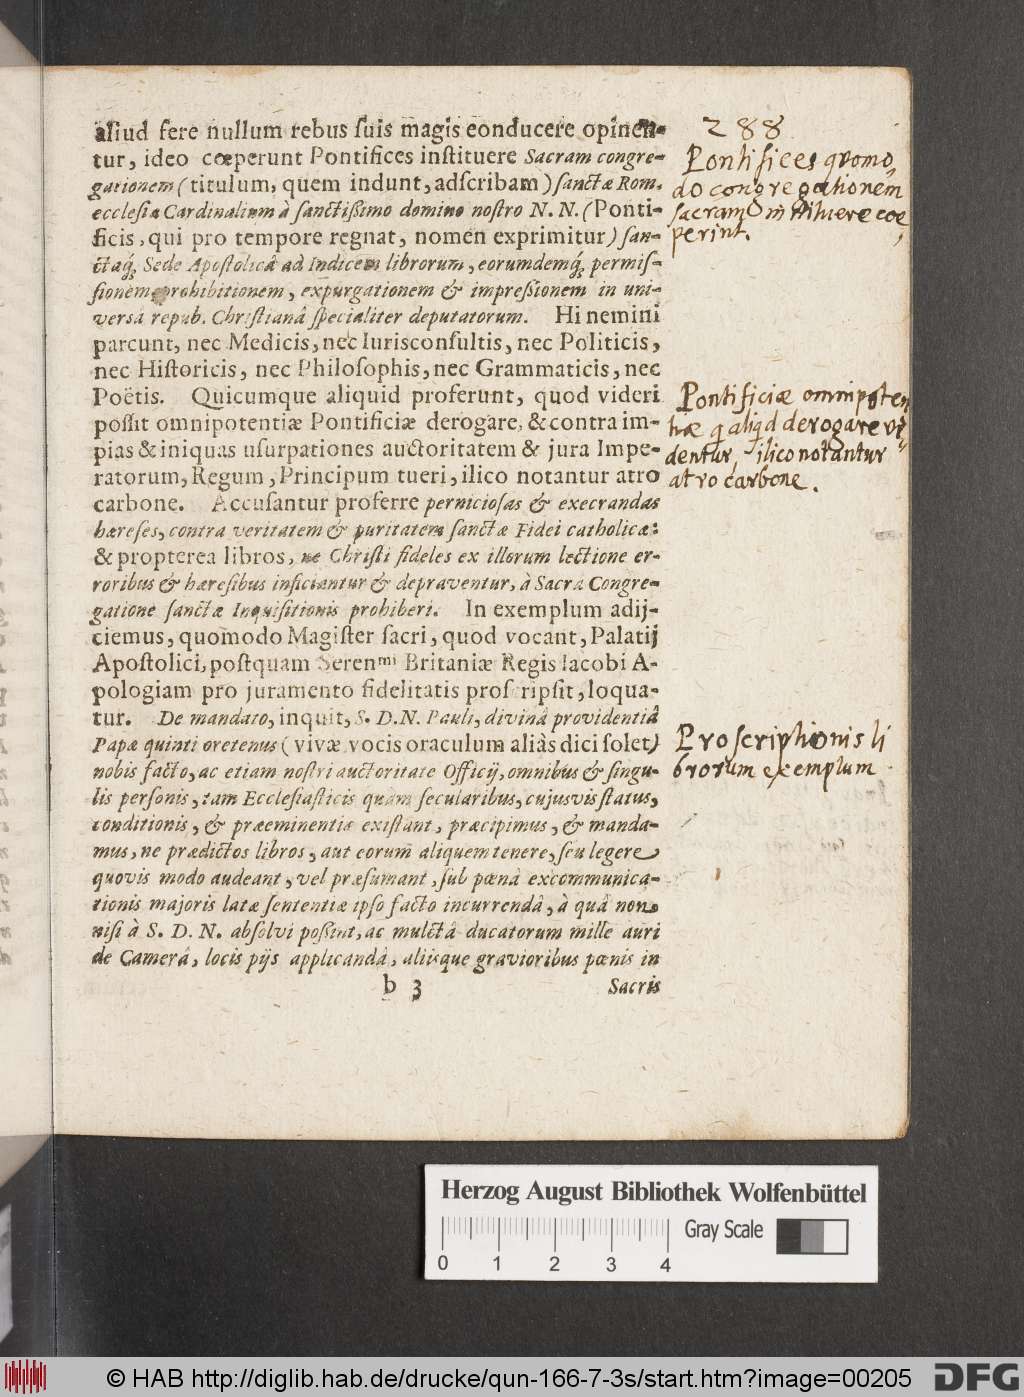 aliud fere nullum rebus suis magis conducere opinen-
tur, ideo cœperunt Pontifices instituere Sacram congre-
gationem (titulum, quem indunt, adscribam) sanctæ Rom.
ecclesiæ Cardinalium à sanctißimo domino nostro N. N. (Ponti-
ficis, qui pro tempore regnat, nomen exprimitur) san-
ctaq́; Sede Apostolicâ ad Indicem librorum, eorumdemq́; permis-
sionem, prohibitionem, expurgationem & impreßionem in uni-
versâ repub. Christianâ specialiter deputatorum. Hi nemini
parcunt, nec Medicis, nec Iurisconsultis, nec Politicis,
nec Historicis, nec Philosophis, nec Grammaticis, nec
Poëtis. Quicumque aliquid proferunt, quod videri
possit omnipotentiæ Pontificiæ derogare, & contra im-
pias & iniquas usurpationes auctoritatem & jura Impe-
ratorum, Regum, Principum tueri, ilico notantur atro
carbone. Accusantur proferre perniciosas & execrandas
hæreses, contra veritatem & puritatem sanctæ Fidei catholicæ:
& propterea libros, ne Christi fideles ex illorum lectione er-
roribus & hæresibus inficiantur & depraventur, à Sacra Congre-
gatione sanctæ Inquisitionis prohiberi. In exemplum adij-
ciemus, quomodo Magister sacri, quod vocant, Palatij
Apostolici, postquam Seren.mi Britaniæ Regis Iacobi A-
pologiam pro juramento fidelitatis proscripsit, loqua-
tur. De mandato, inquit, S. D. N. Pauli, divinâ providentiâ
Papæ quinti oretenus (vivæ vocis oraculum aliàs dici solet)
nobis facto, ac etiam nostri auctoritate Officij, omnibus & singu-
lis personis, tam Ecclesiasticis quàm secularibus, cujusvis status,
conditionis, & præeminentiæ existant, præcipimus, & manda-
mus, ne prædictos libros, aut eorum aliquem tenere, seu legere
quovis modo audeant, vel præsumant, sub pœnâ excommunica-
tionis majoris latæ sententiæ ipso facto incurrendâ, à quâ non
nisi à S. D. N. absolvi poßint, ac mulctâ ducatorum mille auri
de Camerâ, locis pijs applicandâ, aliisque gravioribus pœnis in
b 3 Sacris
288
Pontifices quomo,
do congregationem
sacram instituere coe
perint.
Pontificiæ omnipoten
tiæ q aliqd derogare vi
dentur, ilico notantur
atro carbone.
Proscriptionis li
brorum exemplum
Herzog August Bibliothek Wolfenbüttel
Gray Scale
0 1 2 3 4
© HAB http://diglib.hab.de/drucke/qun-166-7-3s/start.htm?image=00205
DFG